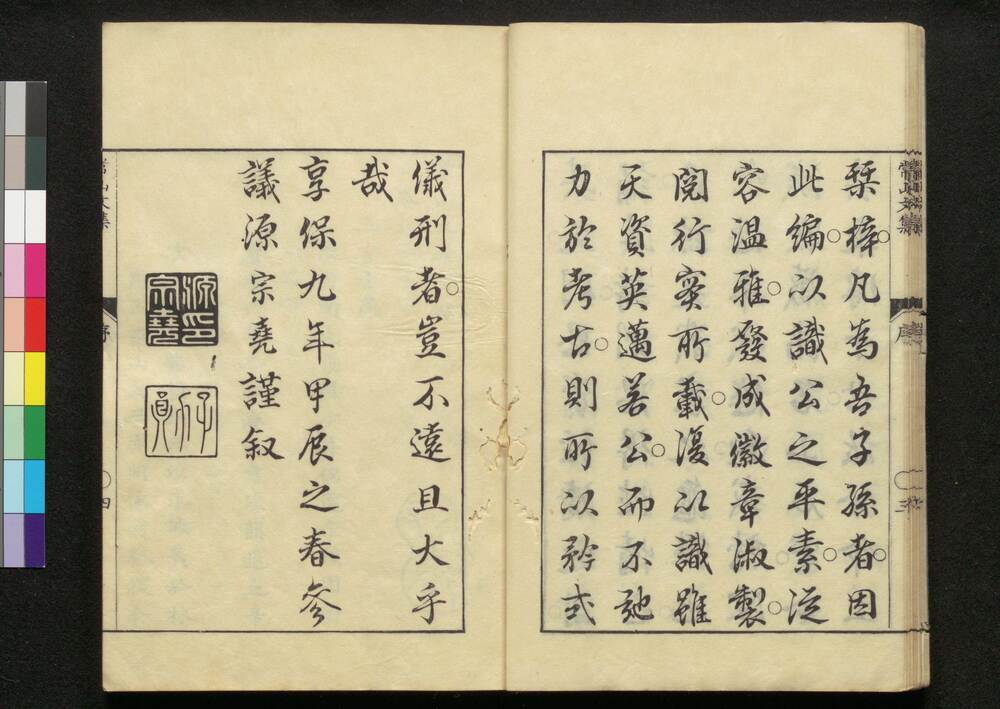 常山文集 序 三
栞梓凡為吾子孫者因
此編以識公之平素從
容温雅發成徽章淑製
閲行実所載復以識雖
天資英邁若公而不弛
力於考古則所以矜式
儀刑者豈不遠且大乎
哉
享保九年甲辰之春參
議源宗堯謹叙
源印宗堯
常山文集 序 四